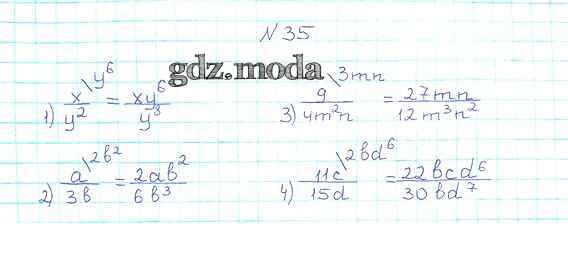 N 35
gdz.moda
1) x/y² \y⁶ = xy⁶/y⁸
3) 9/4m²n \3mn = 27mn/12m³n²
2) a/3b \2b² = 2ab²/6b³
4) 11c/15d \2bd⁶ = 22bcd⁶/30bd⁷